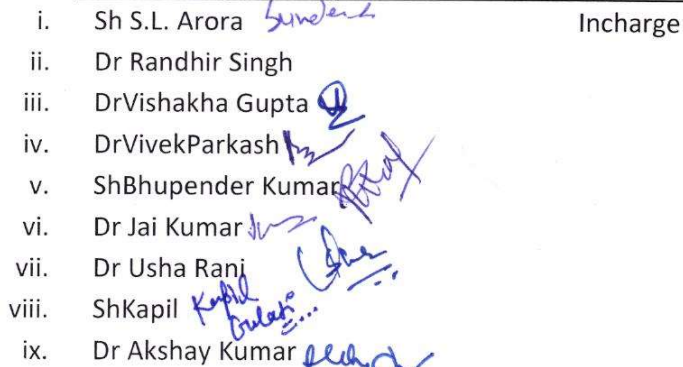 i. Sh S.L. Arora Incharge
ii. Dr Randhir Singh
iii. DrVishakha Gupta
iv. DrVivekParkash
v. ShBhupender Kumar
vi. Dr Jai Kumar
vii. Dr Usha Rani
viii. ShKapil Kapil Gulati
ix. Dr Akshay Kumar